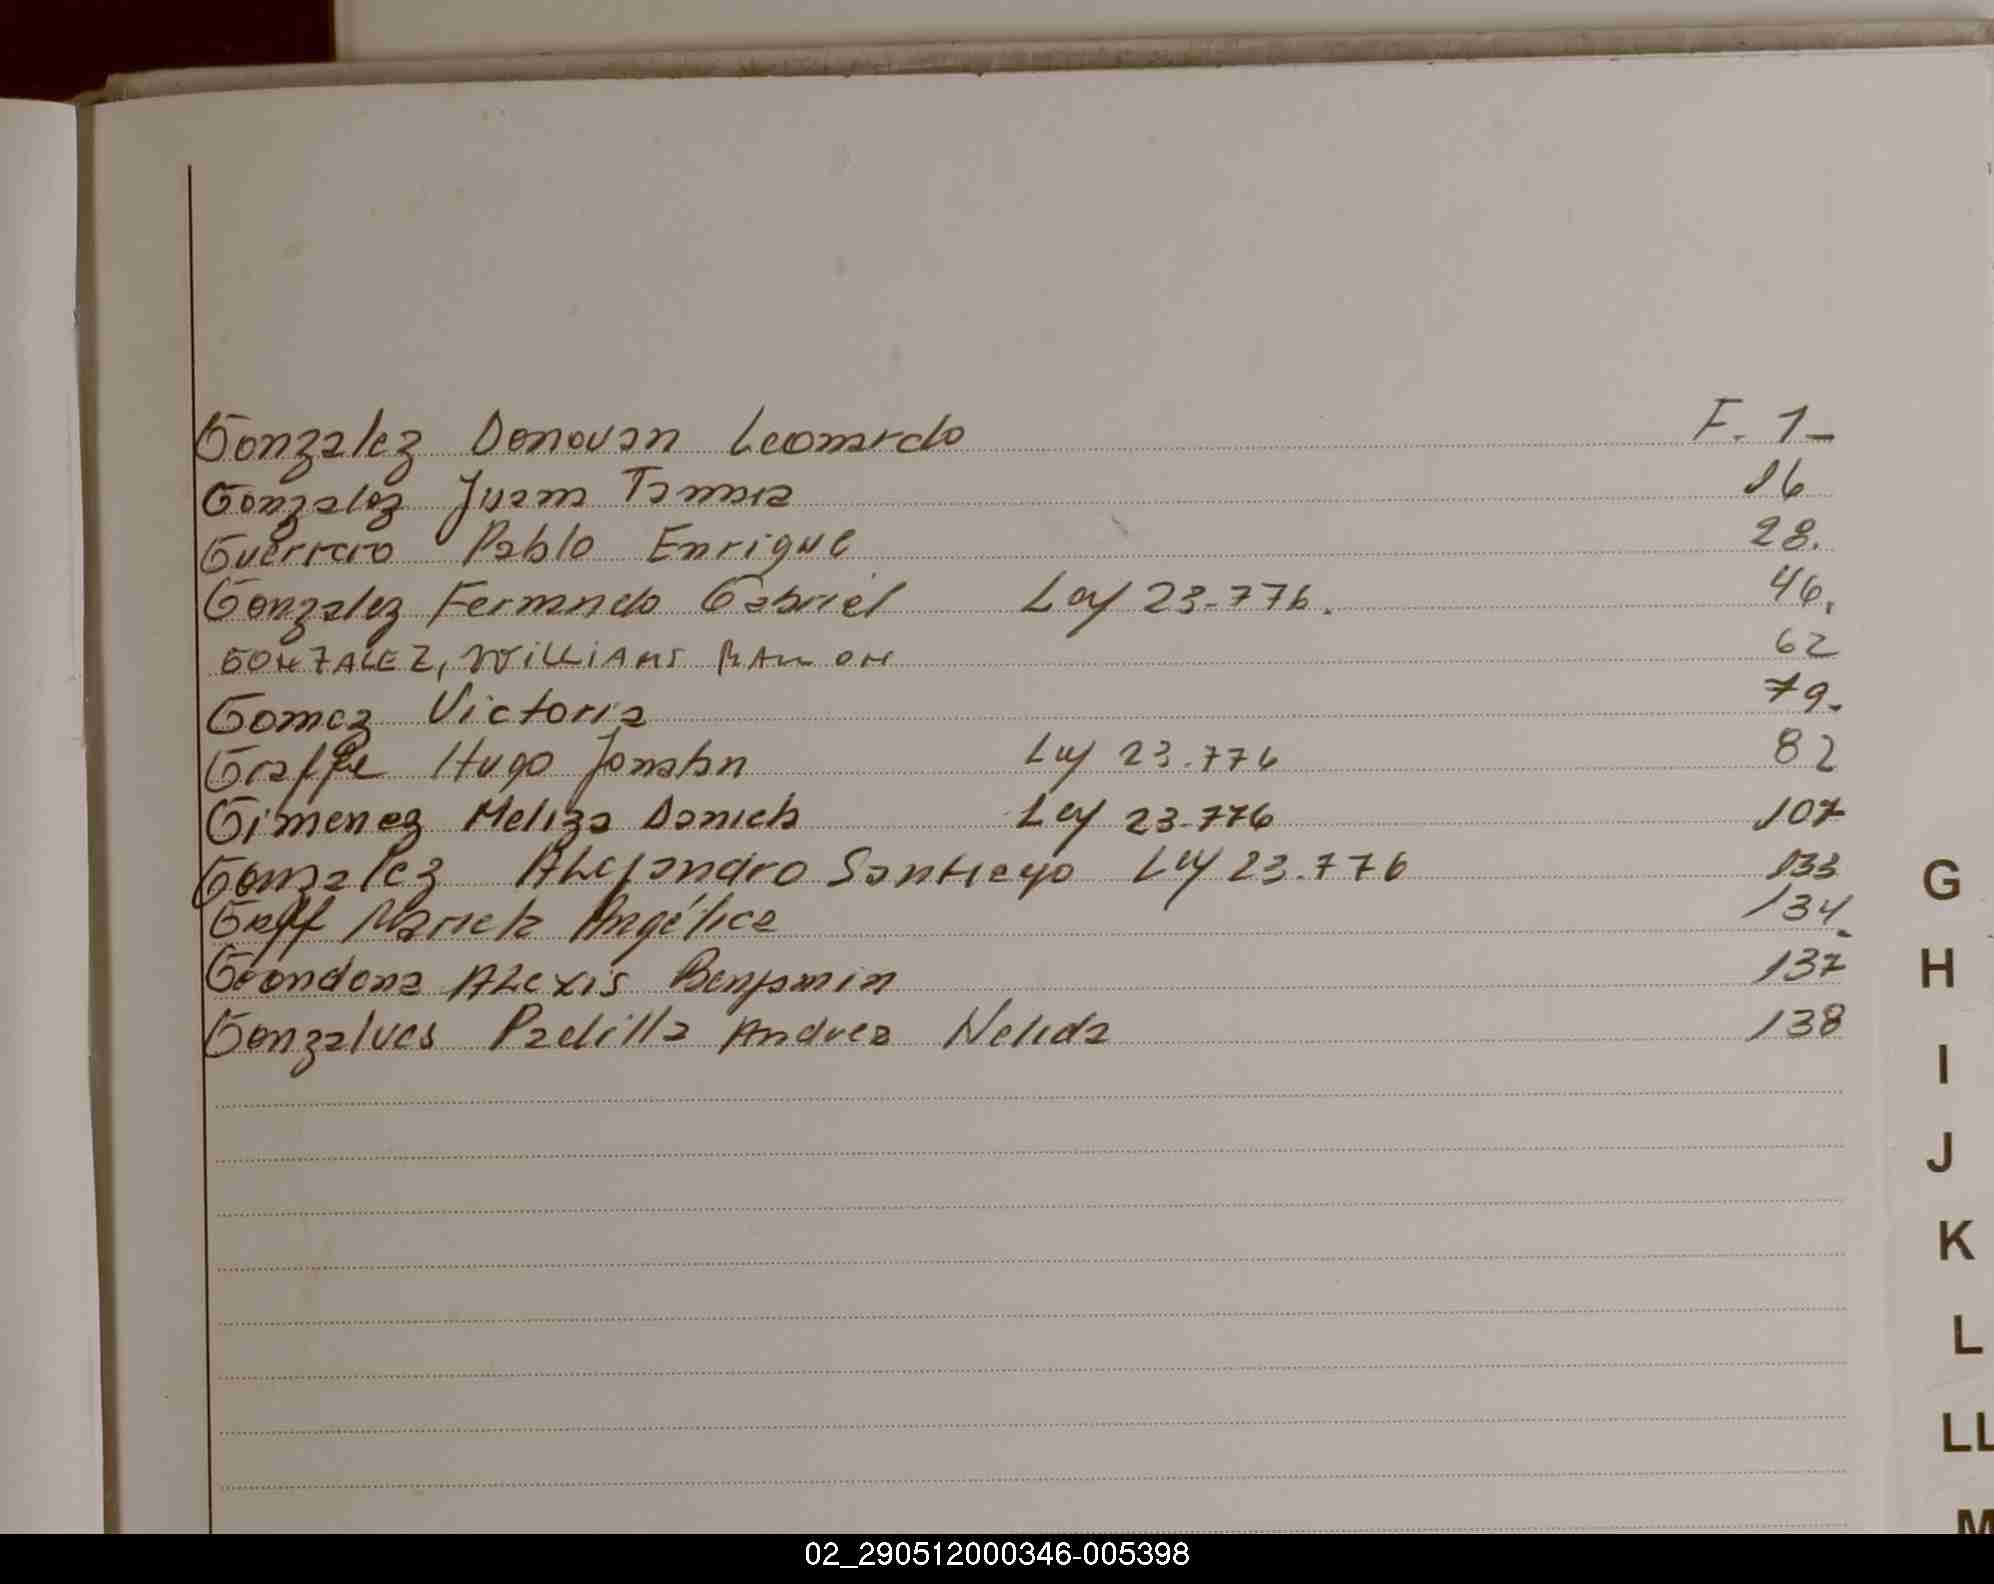 Gonzalez Donovan Leonardo F. 1-
Gonzalez Juan Tomas 16
Guerrero Pablo Enrique 28.
Gonzalez Fernando Gabriel Ley 23.776. 46.
GONZALEZ, WILLIAMS RAMON 62
Gomez Victoria 79.
Graffe Hugo Jonatan Ley 23.776 82
Gimenez Meliza Daniela Ley 23.776 107
Gonzalez Alejandro Santiago Ley 23.776 133
Graff Mariela Angélica 134.
Grondona Alexis Benjamin 137
Gonzalves Padilla Andrea Nelida 138
G
H
I
J
K
L
LL
M
02_290512000346-005398